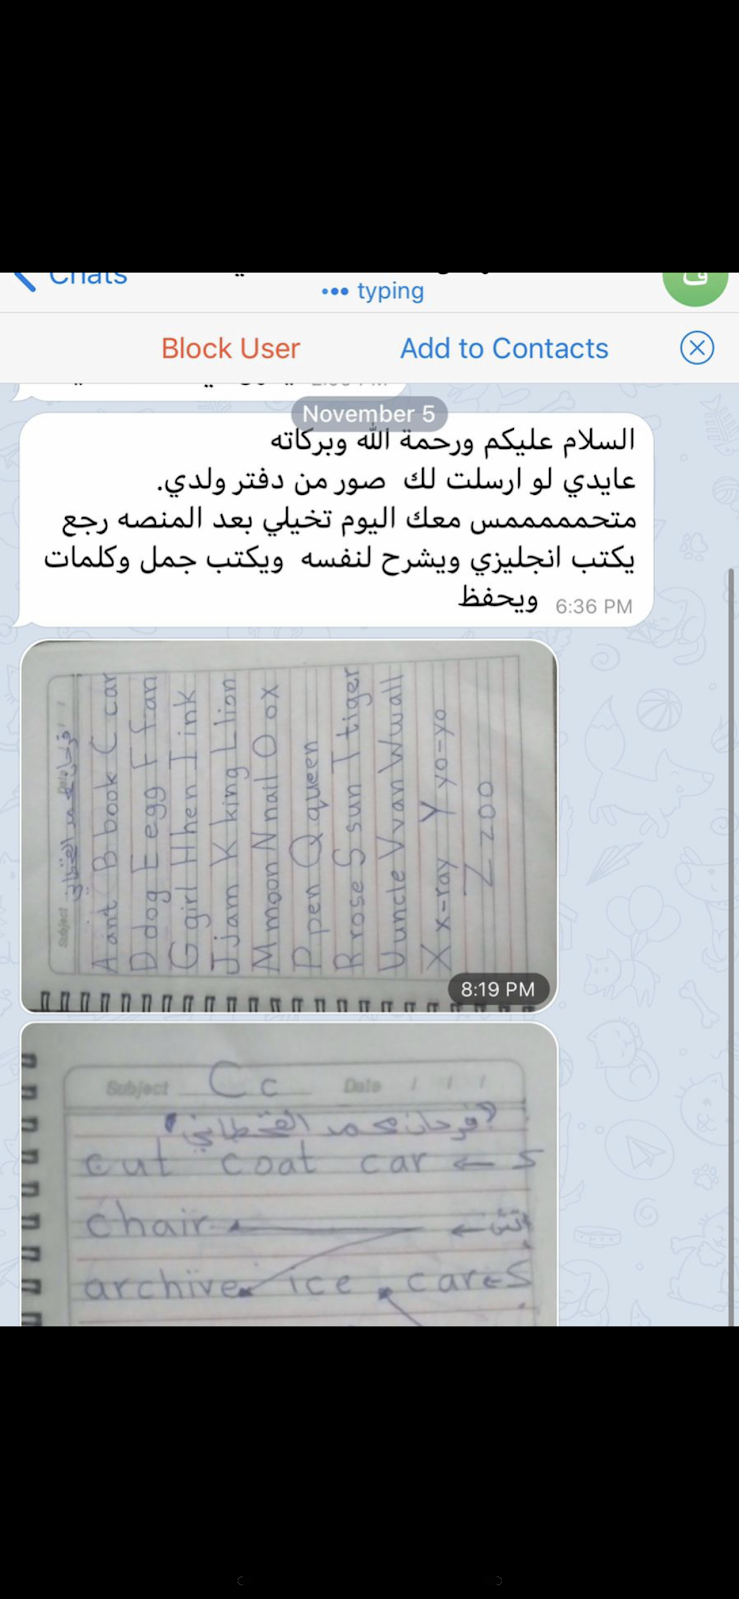 Chats
••• typing
ف
Block User
Add to Contacts
November 5
السلام عليكم ورحمة الله وبركاته
عايدي لو ارسلت لك صور من دفتر ولدي.
متحمممممس معك اليوم تخيلي بعد المنصه رجع
يكتب انجليزي ويشرح لنفسه ويكتب جمل وكلمات
ويحفظ
6:36 PM
Subject
فرحان محمد القحطاني
A ant B book C car
D dog E egg F fan
G girl H hen I ink
J jam K king L lion
M moon N nail O ox
P pen Q queen
R rose S sun T tiger
U uncle V van W wall
X x-ray Y yo-yo
Z zoo
8:19 PM
Subject Cc Date / / /
فرحان محمد القحطاني
cut coat car ←
chair ←
archive ice care